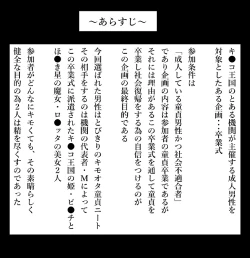 ～あらすじ～
キ●コ王国のとある機関が主催する成人男性を
対象としたある企画・・卒業式
参加条件は
「成人している童貞男性かつ社会不適合者」
であり企画の内容は参加者の童貞卒業であるが
それには理由がありこの卒業式を通して童貞を
卒業し社会復帰をする為の自信をつけるのが
この企画の最終目的である
今回選ばれた男性はとびきりのキモオタ童貞ニート
その相手をするのは機関の代表者・Mによって
この卒業式に派遣されたキ●コ王国の姫・ピ●チと
ほ●き星の魔女・ロ●ッタの美女2人
参加者がどんなにキモくても、その素晴らしく
健全な目的の為2人は精を尽くすのであった